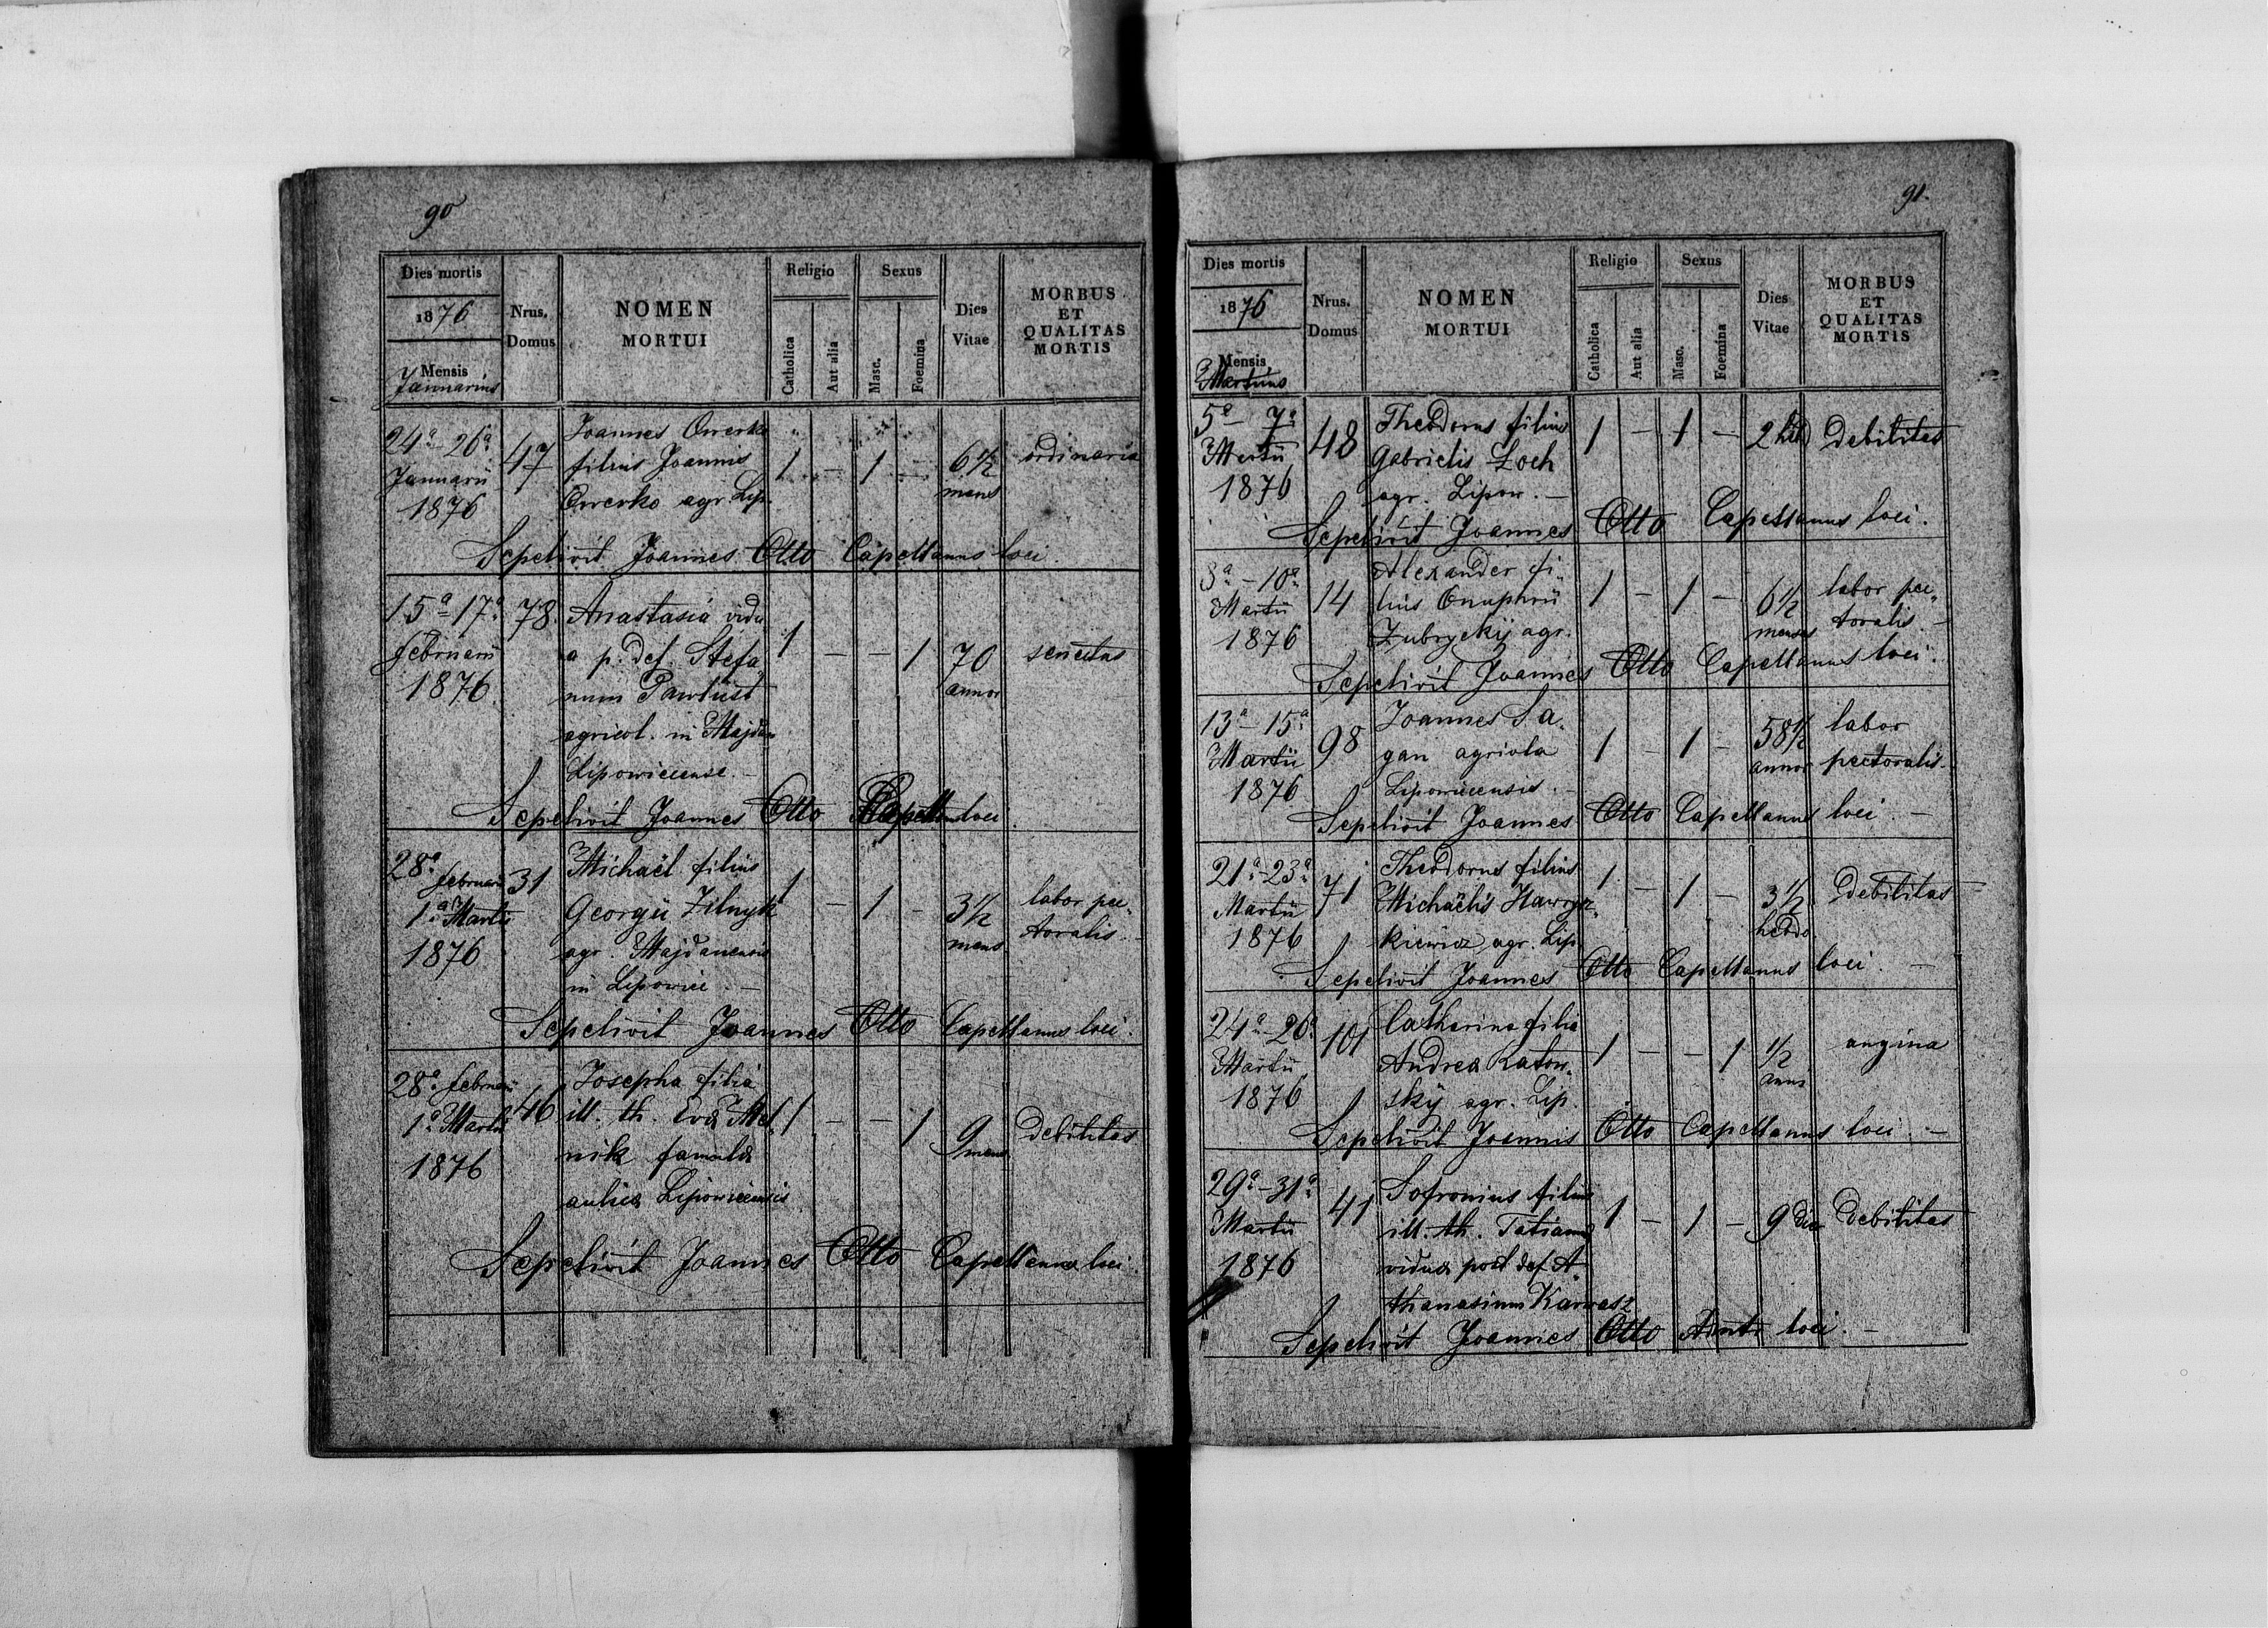 90
Dies mortis
1876
Mensis
Januarius
Nrus.
Domus
NOMEN
MORTUI
Religio
Catholica
Aut alia
Sexus
Masc.
Foemina
Dies
Vitae
MORBUS
ET
QUALITAS
MORTIS
24a - 26a
Januarii
1876
47
Joannes Owerko
filius Joannis
Owerko agr. Lip.
1 - 1 -
6 1/2
mens
ordinaria
Sepelivit Joannes Otto Capellanus loci.
15a - 17a
februarii
1876
78
Anastasia vidu
a p. def. Stefa„
num Pawlust
agricol. in Majdan
Lipowicense. -
1 - - 1
70
annor
senectus
Sepelivit Joannes Otto Capellanus loci.
28a februarii
1a Martii
1876
31
Michaël filius
Georgii Zilnyk
agr. Majdanensis
in Lipowice. -
1 - 1 -
3 1/2
mens
labor pec„
toralis. -
Sepelivit Joannes Otto Capellanus loci.
28a februarii
1a Martii
1876
46
Josepha filia
ill. th. Eva Mel„
nik famula
aulica Lipowicensis
1 - - 1
9
mens
debilitas
Sepelivit Joannes Otto Capellanus loci.
91.
Dies mortis
1876
Mensis
Martius
Nrus.
Domus
NOMEN
MORTUI
Religio
Catholica
Aut alia
Sexus
Masc.
Foemina
Dies
Vitae
MORBUS
ET
QUALITAS
MORTIS
5a - 7a
Martii
1876
48
Theodorus filius
Gabrielis Loch
agr. Lipow. -
1 - 1 -
2 heb
debilitas
Sepelivit Joannes Otto Capellanus loci.
8a - 10a
Martii
1876
14
Alexander fi„
lius Onuphrii
Zubryckij agr.
1 - 1 -
6 1/2
menses
labor pec„
toralis. -
Sepelivit Joannes Otto Capellanus loci.
13a - 15a
Martii
1876
98
Joannes Sa„
gan agriola
Lipowicensis. -
1 - 1 -
58 1/2
annor
labor
pectoralis. -
Sepelivit Joannes Otto Capellanus loci. -
21a - 23a
Martii
1876
71
Theodorus filius
Michaëlis Hawryz„
kiewicz agr. Lip.
1 - 1 -
3 1/2
hebdo.
debilitas
Sepelivit Joannes Otto Capellanus loci. -
24a - 26a
Martii
1876
101
Catharina filia
Andrea Ratow„
skij agr. Lip.
1 - - 1
1/2
anni
angina
Sepelivit Joannis Otto Capellanus loci. -
29a - 31a
Martii
1876
41
Sofronius filius
ill. th. Tatianæ
viduæ post def. A„
thanasium Karwasz
1 - 1 -
9 die
debilitas
Sepelivit Joannes Otto loci. -